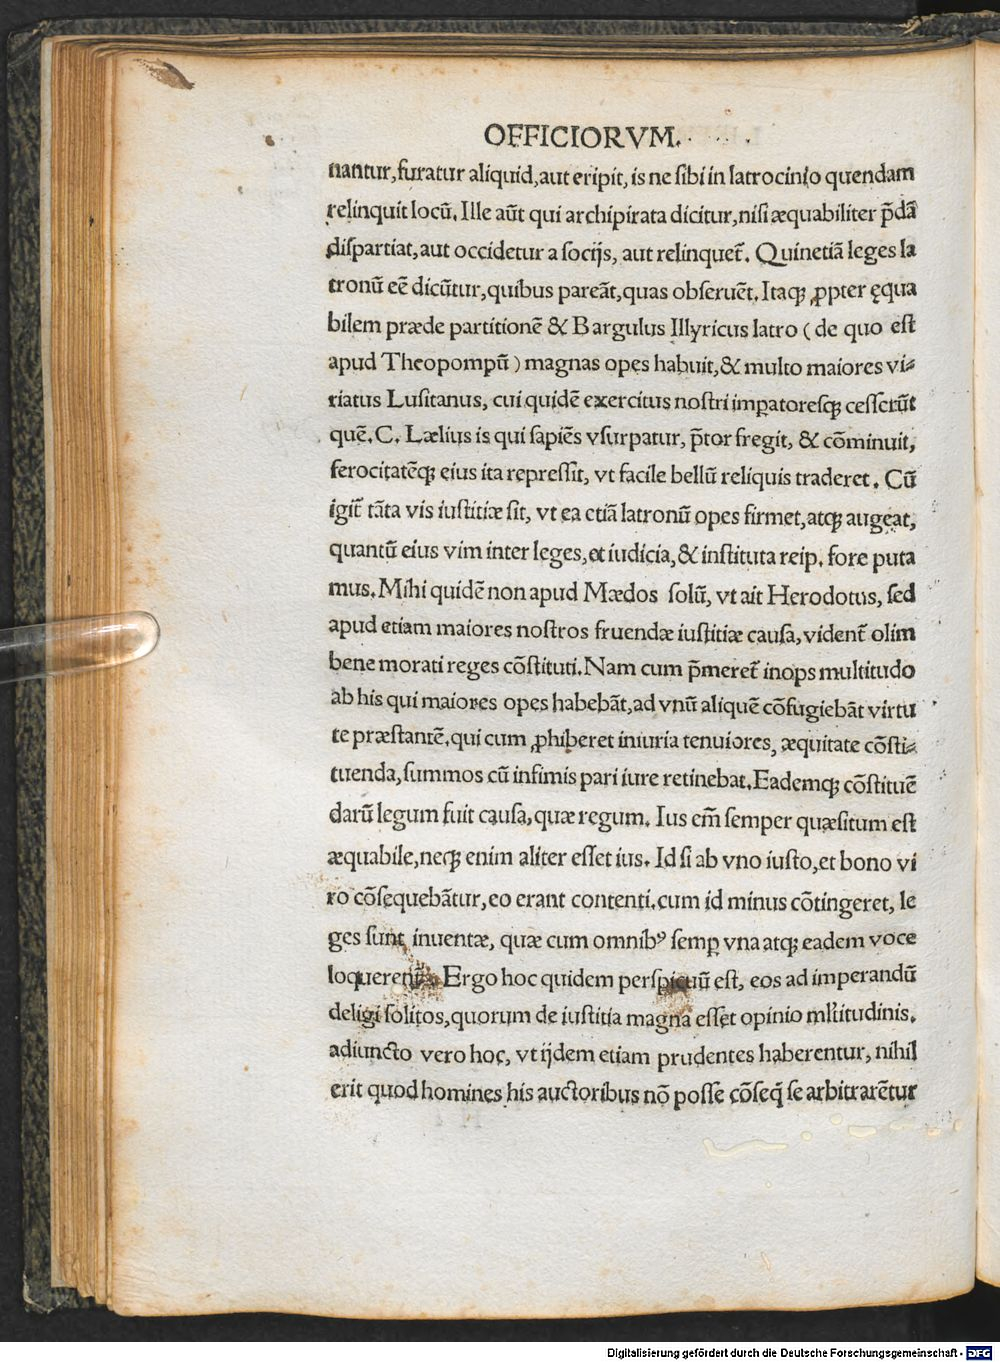 OFFICIORVM.
nantur, furatur aliquid, aut eripit, is ne sibi in latrocinio quendam
relinquit locū. Ille aūt qui archipirata dicitur, nisi æquabiliter p̄dā
dispartiat, aut occidetur a socijs, aut relinquet̄. Quinetiā leges la
tronū eē dicūtur, quibus pareāt, quas obseruēt. Itaqꝫ ꝓpter ęqua
bilem præde partitionē & Bargulus Illyricus latro ( de quo est
apud Theopompū ) magnas opes habuit, & multo maiores vi⸗
riatus Lusitanus, cui quidē exercitus nostri imꝑatoresqꝫ cesserūt
quē. C. Lælius is qui sapiēs vsurpatur, p̄tor fregit, & cōminuit,
ferocitatēqꝫ eius ita repressit, vt facile bellū reliquis traderet. Cū
igit̄ tāta vis iustitiæ sit, vt ea etiā latronū opes firmet, atqꝫ augeat,
quantū eius vim inter leges, et iudicia, & instituta reip. fore puta
mus. Mihi quidē non apud Mædos solū, vt ait Herodotus, sed
apud etiam maiores nostros fruendæ iustitiæ causa, vident̄ olim
bene morati reges cōstituti. Nam cum p̄meret̄ inops multitudo
ab his qui maiores opes habebāt, ad vnū aliquē cōfugiebāt virtu
te præstantē, qui cum ꝓhiberet iniuria tenuiores, æquitate cōsti⸗
tuenda, summos cū infimis pari iure retinebat. Eademqꝫ cōstituē
darū legum fuit causa, quæ regum. Ius em̄ semper quæsitum est
æquabile, neqꝫ enim aliter esset ius. Id si ab vno iusto, et bono vi
ro cōsequebātur, eo erant contenti. cum id minus cōtingeret, le
ges sunt inuentæ, quæ cum omnibꝰ semꝑ vna atqꝫ eadem voce
loquerent̄. Ergo hoc quidem perspicuū est, eos ad imperandū
deligi solitos, quorum de iustitia magna esset opinio ml̄titudinis.
adiuncto vero hoc, vt ijdem etiam prudentes haberentur, nihil
erit quod homines his auctoribus nō posse cōseq̄ se arbitrarētur
Digitalisierung gefördert durch die Deutsche Forschungsgemeinschaft - DFG